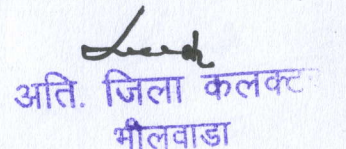 अति. जिला कलक्ट
भीलवाडा